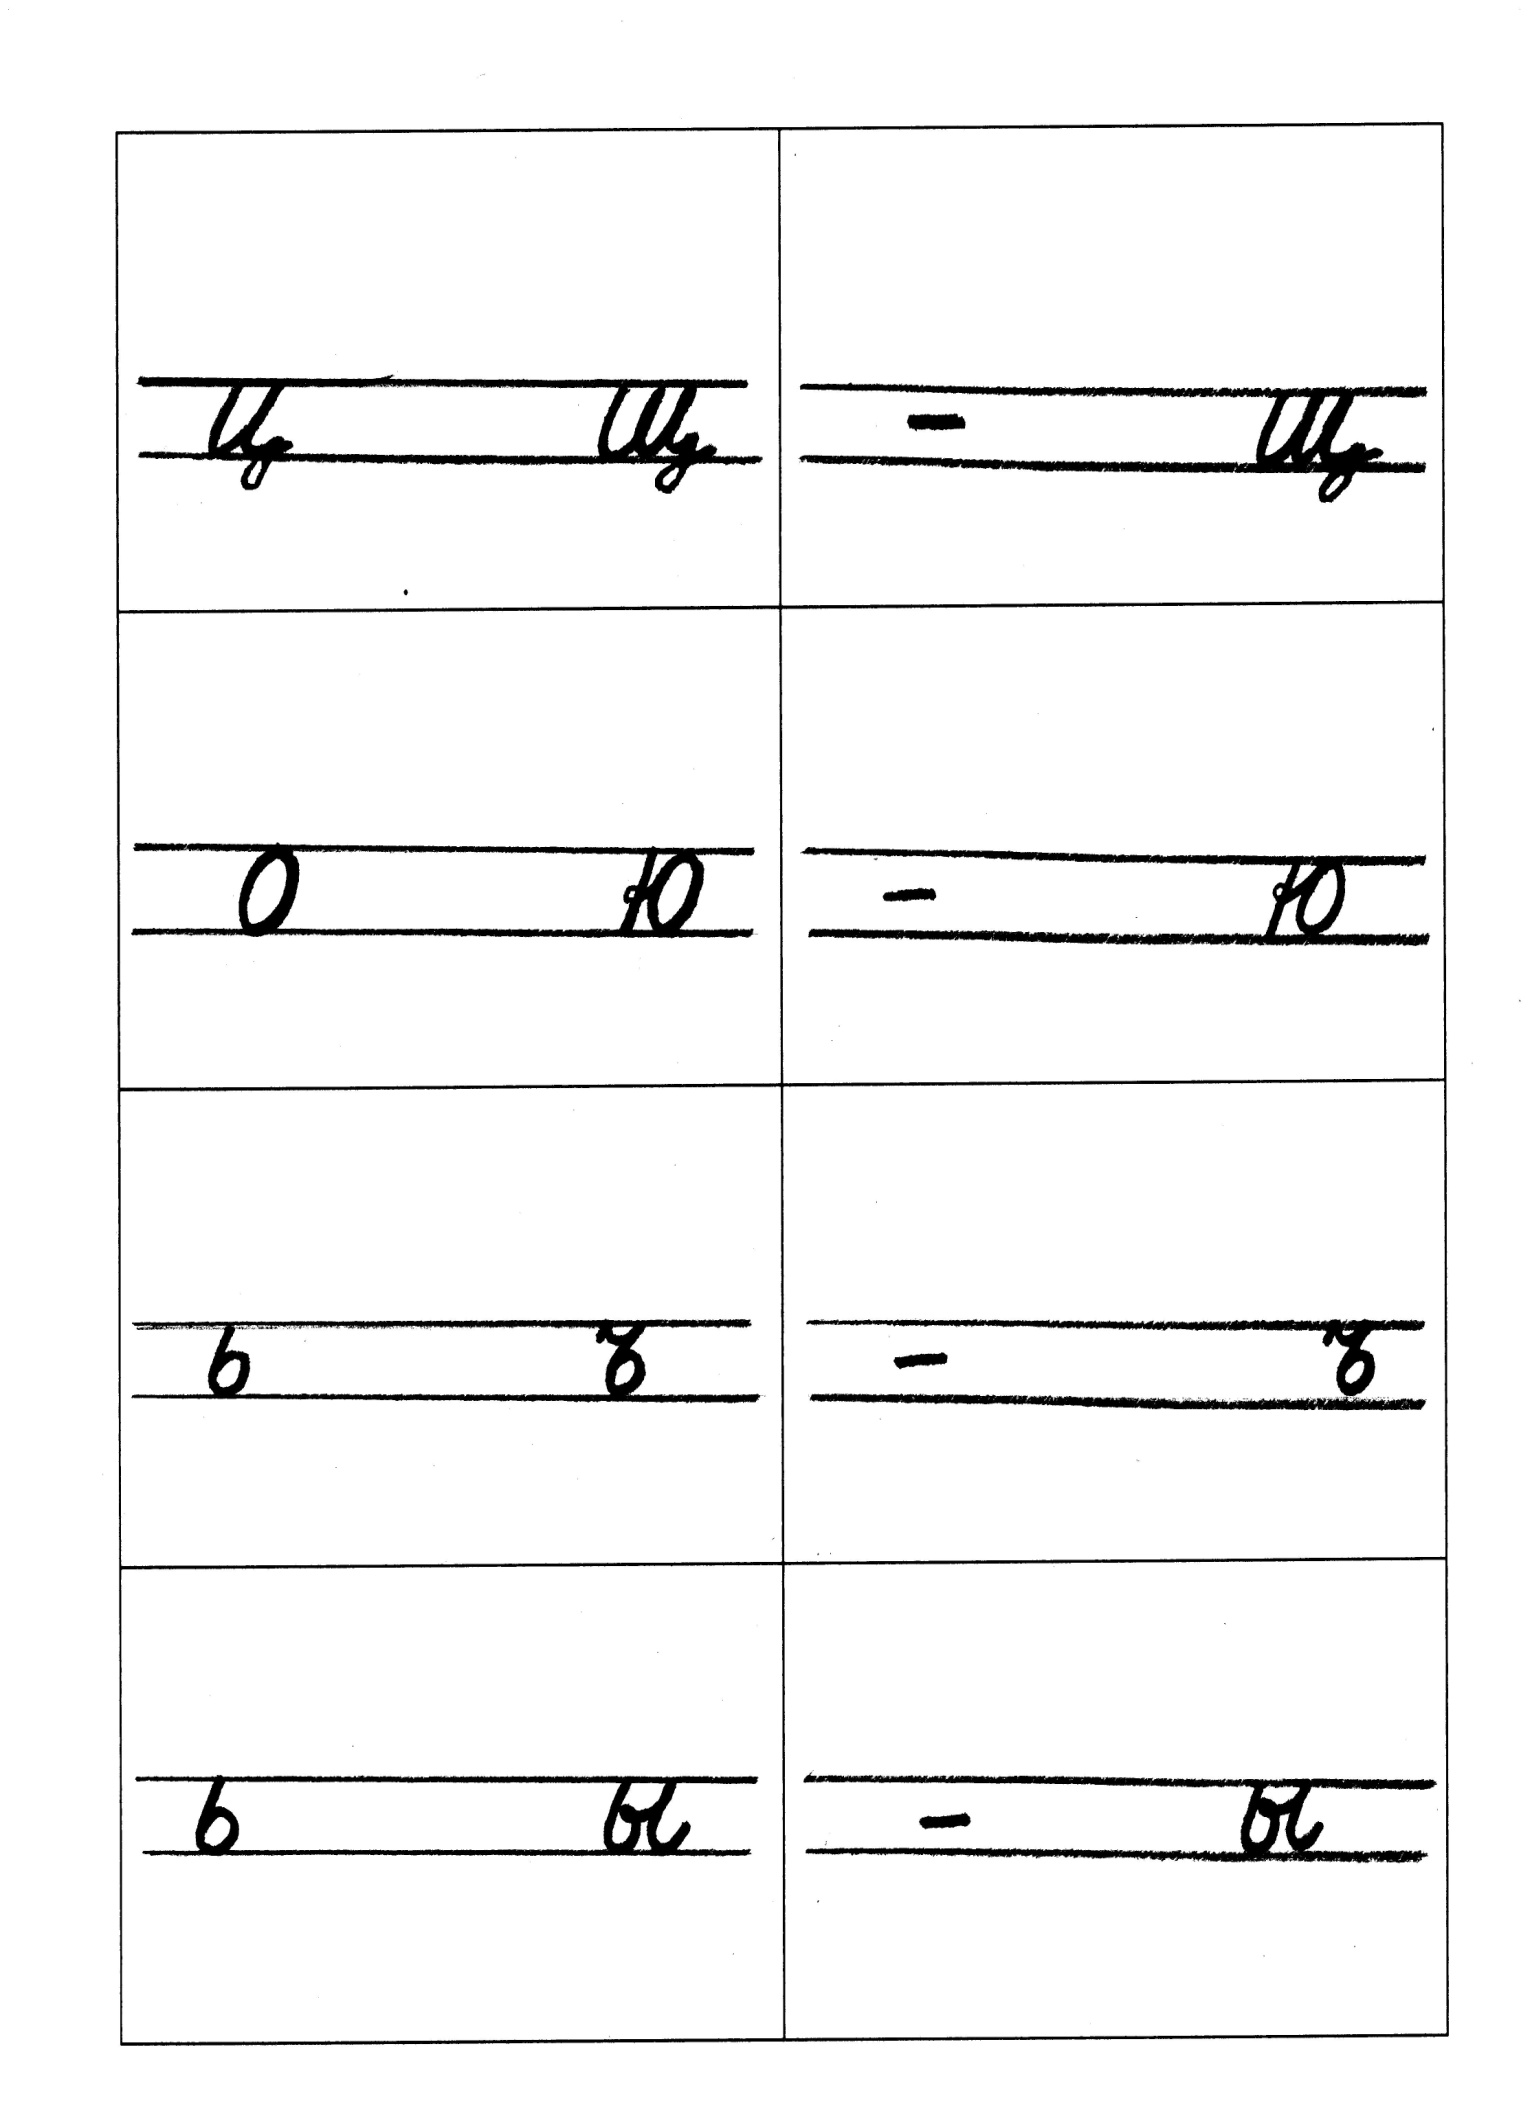 ц щ
- щ
о ю
- ю
ь ъ
- ъ
ь ы
- ы